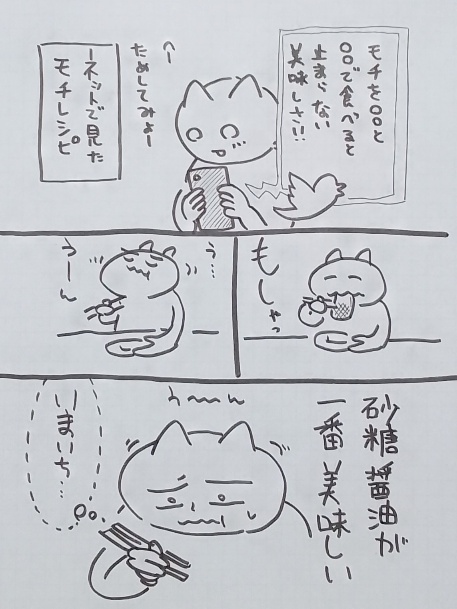 モチを〇〇と
〇〇で食べると
止まらない
美味しさ!!
へー
ためしてみよー
ネットで見た
モチレシピ
もしゃっ
う…
うーん
砂糖醤油が
一番美味しい
うーーん
いまいち…